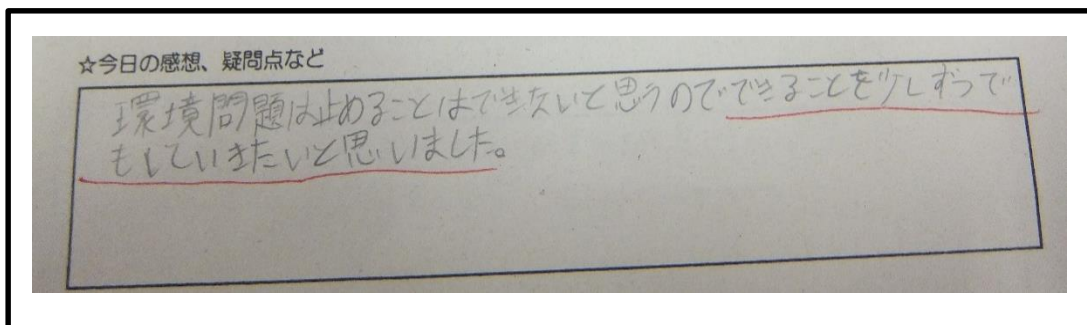 ☆今日の感想、疑問点など
環境問題は止めることはできないと思うのでできることを少しずつで
もしていきたいと思いました。